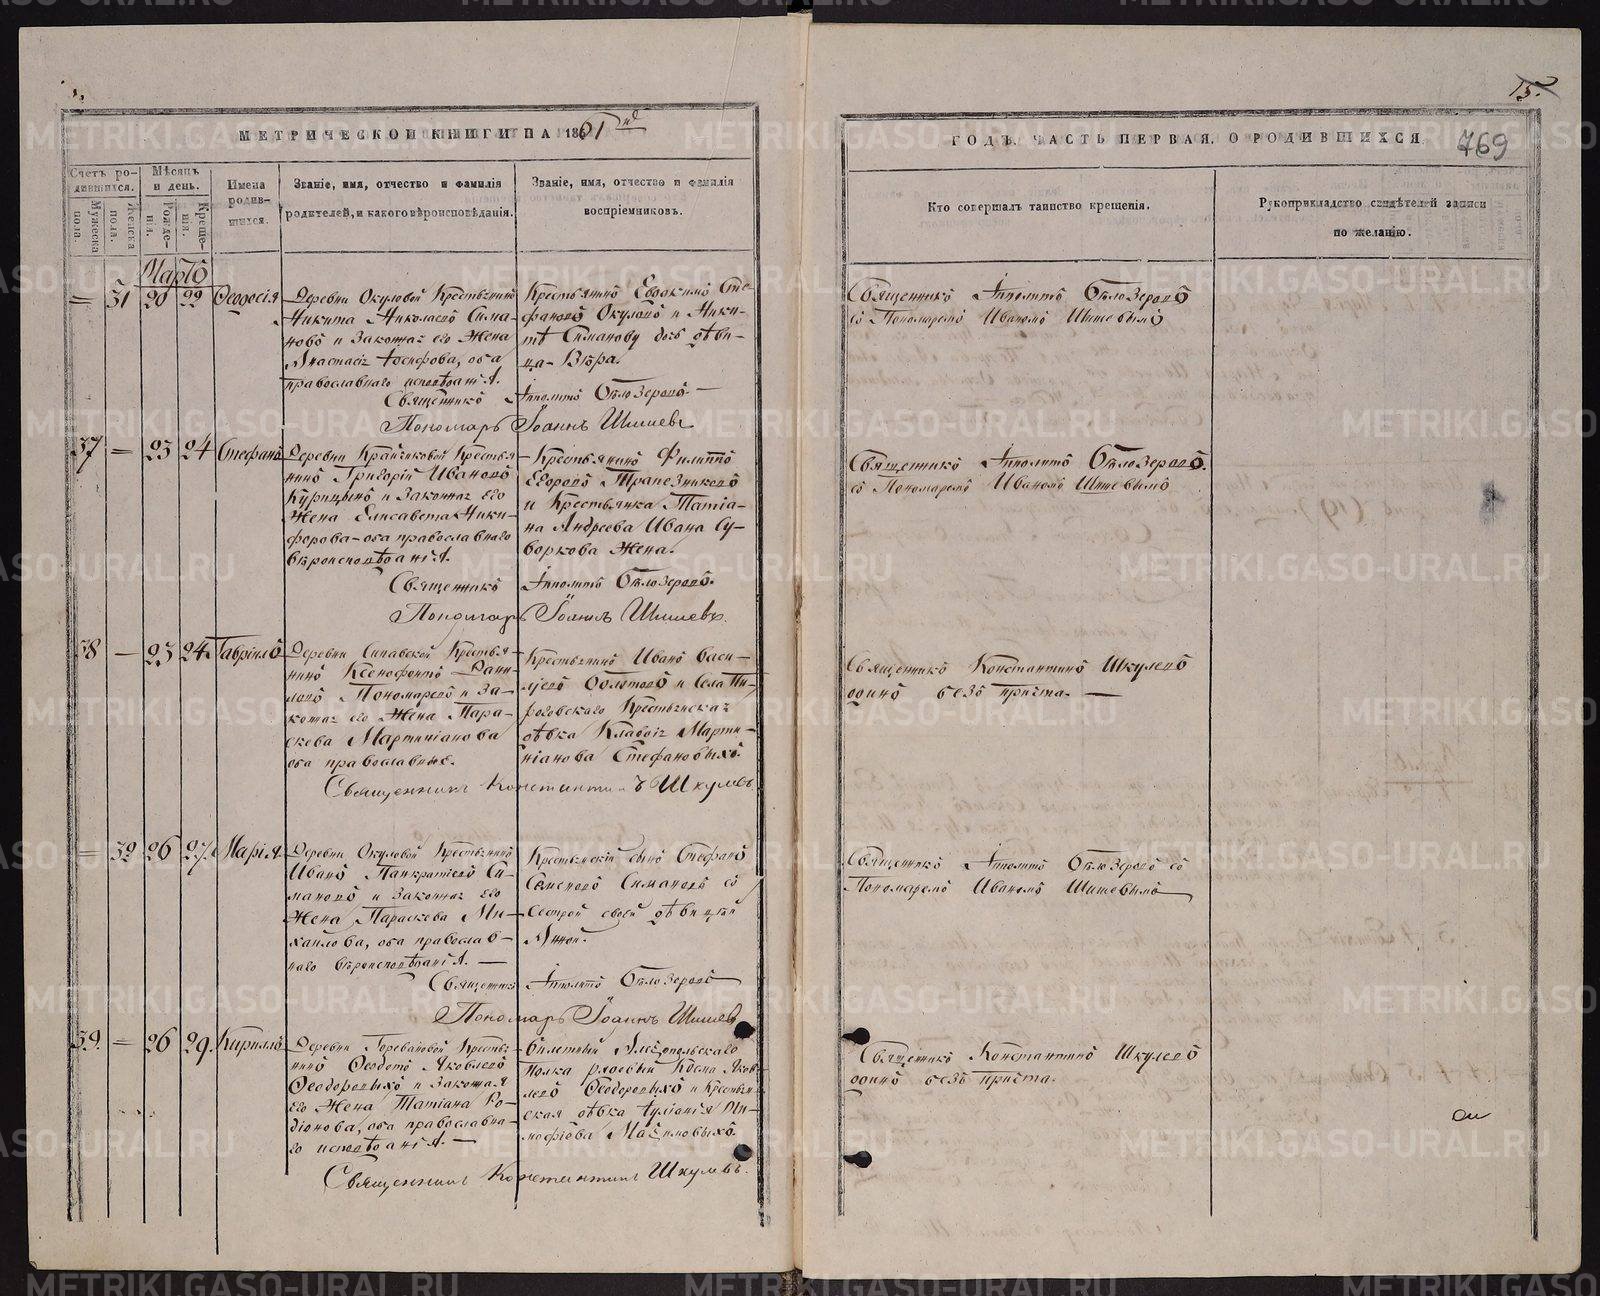 15.
769
МЕТРИЧЕСКОЙ КНИГИ НА 1861й
ГОДЪ, ЧАСТЬ ПЕРВАЯ, О РОДИВШИХСЯ
Счетъ ро-
дившихся.
Мужеска
пола.
Женска
пола.
Мѣсяцъ
и день.
Рожде-
нія.
Креще-
нія.
Имена
родив-
шихся.
Званіе, имя, отчество и фамилія
родителей, и какого вѣроисповѣданія.
Званіе, имя, отчество и фамилія
воспріемниковъ.
Кто совершалъ таинство крещенія.
Рукоприкладство свидѣтелей записи
по желанію.
Мартъ
= 31 20 22 Ѳеодосія
Деревни Окуловой Крестьянинъ
Никита Николаевъ Сима-
новъ и Законная его Жена
Анастасія Іосифова, оба
православнаго исповѣданія.
Крестьянинъ Евдокимъ Сте-
фановъ Окуловъ и Ники-
ты Симанову дочь дѣви-
ца Вѣра.
Священникъ Ипполитъ Бѣлозеровъ.
Пономарь Іоаннъ Шишевъ
Священникъ Ипполитъ Бѣлозеровъ
съ Пономаремъ Иваномъ Шишевымъ
37 = 23 24 Стефанъ
Деревни Крайчиковой Крестья-
нинъ Григорій Ивановъ
Курицынъ и Законная его
Жена Елисавета Ники-
форова оба православнаго
вѣроисповѣданія.
Крестьянинъ Филиппъ
Егоровъ Трапезниковъ
и Крестьянка Татіа-
на Андреева Ивана Су-
воркова Жена.
Священникъ Ипполитъ Бѣлозеровъ.
Пономарь Іоаннъ Шишевъ.
Священникъ Ипполитъ Бѣлозеровъ.
съ Пономаремъ Иваномъ Шишевымъ
38 — 23 24 Гавріилъ
Деревни Крестья-
нинъ Ксенофонтъ Дани-
ловъ Пономаревъ и За-
конная его Жена Пара-
скева Мартиніанова
оба православные.
Крестьянинъ Иванъ Васи-
льевъ Болотовъ и Села Пи-
роговскаго Крестьянская
дѣвка Клавдія Марти-
ніанова Стефановыхъ.
Священникъ Константинъ Шкулевъ.
Священникъ Константинъ Шкулевъ
одинъ безъ причта.
= 32 26 27. Марія
Деревни Окуловой Крестьянинъ
Иванъ Панкратіевъ Си-
мановъ и Законная его
Жена Параскева Ми-
хайлова, оба православ-
наго вѣроисповѣданія.
Крестьянскій сынъ Стефанъ
Семеновъ Симановъ съ
сестрой своей дѣвицей
Анной.
Священникъ Ипполитъ Бѣлозеровъ
Пономарь Іоаннъ Шишевъ
Священникъ Ипполитъ Бѣлозеровъ съ
Пономаремъ Иваномъ Шишевымъ
39. = 26 29. Кириллъ
Деревни Горевановой Крестья-
нинъ Ѳеодотъ Яковлевъ
Ѳеодоровыхъ и Законная
его Жена Татіана Ро-
діонова, оба православна-
го исповѣданія.
Билетный
полка рядовый Косма Яков-
левъ Ѳеодоровыхъ и Крестьян-
ская дѣвка Іуліанія Ти-
моѳіева Максимовыхъ
Священникъ Константинъ Шкулевъ.
Священникъ Константинъ Шкулевъ
одинъ безъ причта.
METRIKI.GASO-URAL.RU